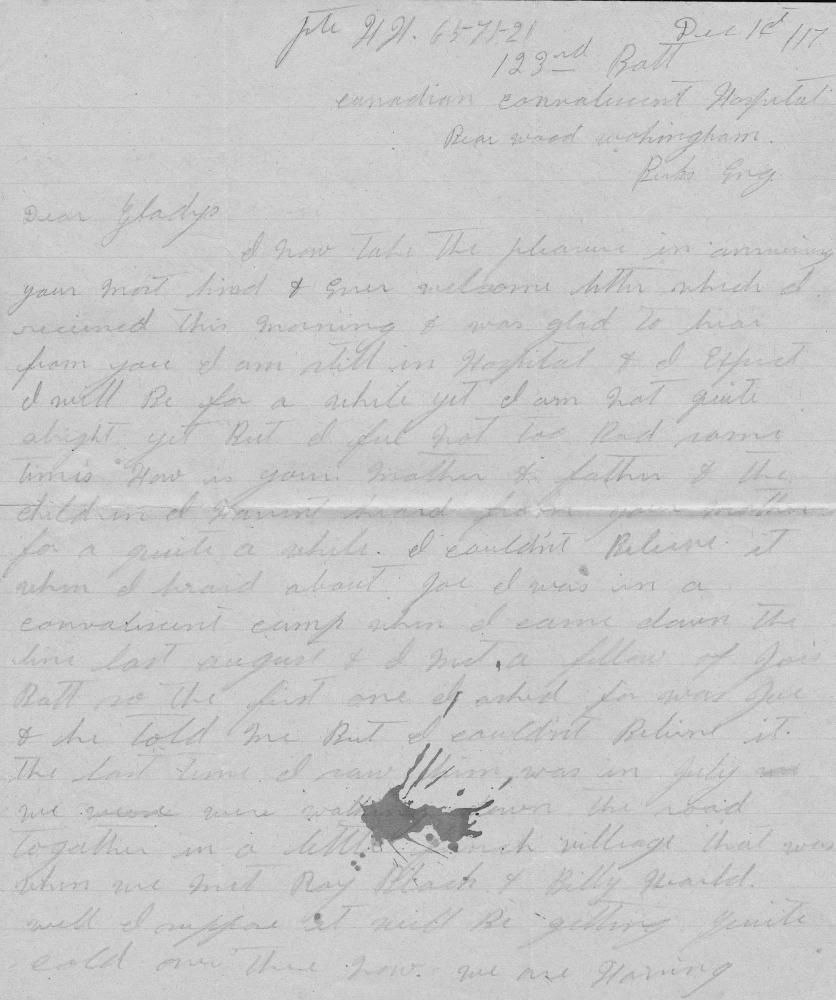 Pte H.H. 657121 Dec 1st /17
123rd Batt
Canadian Convalescent Hospital
Bear wood wokingham.
Berks Eng.
Dear Gladys
I now take the pleasure in answering
your most kind & Ever welcome letter which I
received this morning & was glad to hear
from you I am still in Hospital & I Expect
I will Be for a while yet I am not quite
alright yet But I feel not too Bad some
times How is your Mother & father & the
children I Havent heard from your mother
for a quite a while. I couldn't Believe it
when I heard about Joe I was in a
convalescent camp when I came down the
line last august & I met a fellow of Joes
Batt so the first one I asked for was Joe
& he told me But I couldn't Believe it.
The last time I saw him was in July
we were were walking down the road
together in a little french village that was
when we met Roy Black & Billy
well I suppose it will Be getting quite
cold over there now. we are Having